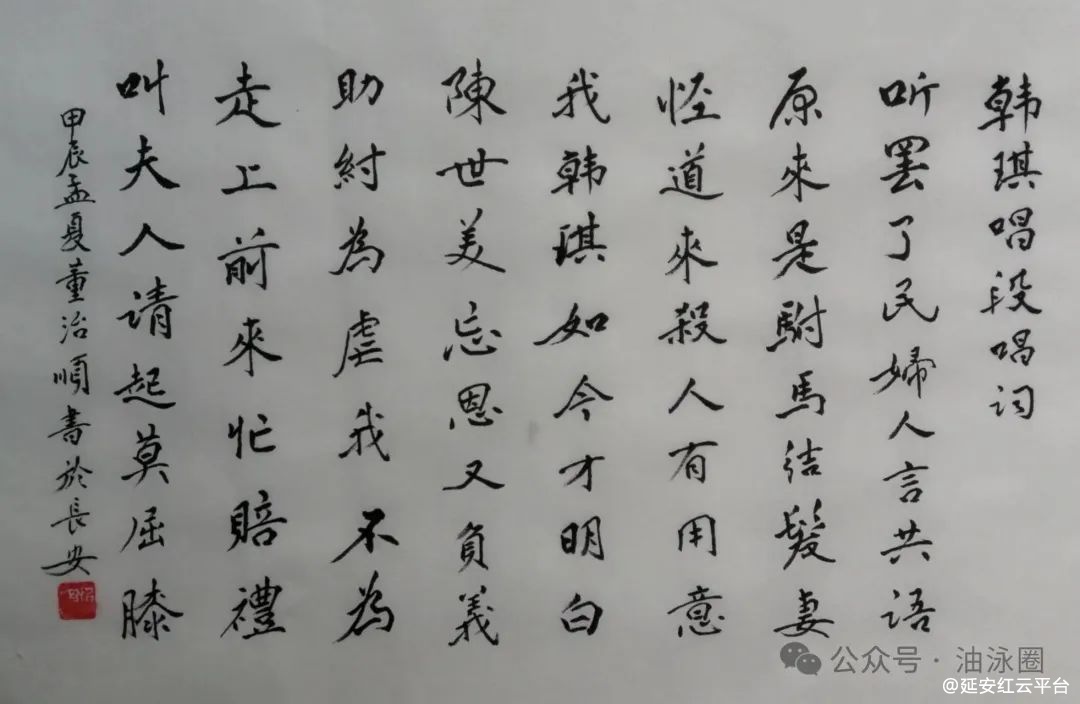 韩琪唱段唱词
听罢了民婦人言共语
原來是駙馬结髮妻
怪道來殺人有用意
我韩琪如今才明白
陳世美忘恩又負義
助紂為虐我不為
走上前來忙賠禮
叫夫人请起莫屈膝
甲辰孟夏董治順書於長安
公众号·油泳圈
@延安红云平台